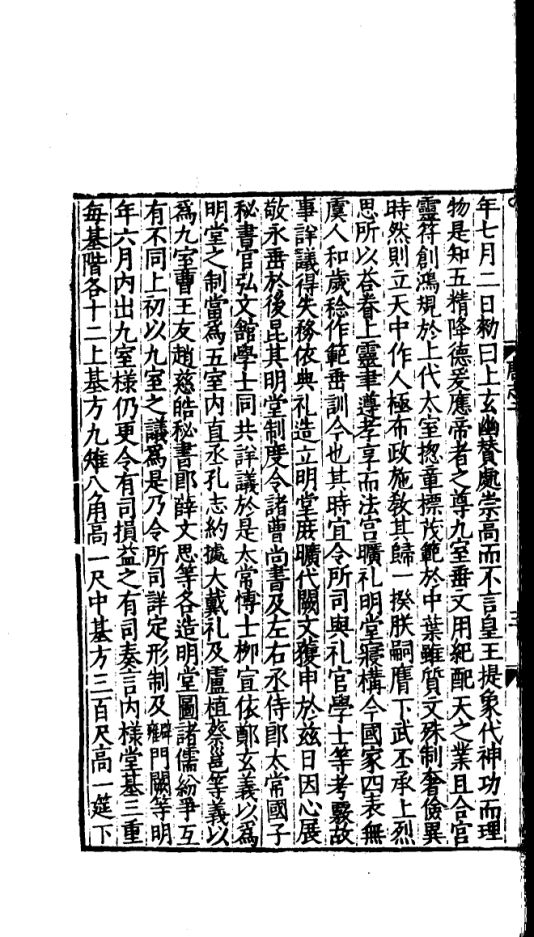 年七月二日勑曰上玄幽賛處崇高而不言皇王提象代神功而理
物是知五精降德爰應帝者之尊九室垂文用紀配天之業且合官
靈符創鴻規於上代太室揔章摽茂範於中葉雖質文殊制奢儉異
時然則立天中作人極布政施敎其歸一揆朕嗣膺下武丕承上烈
思所以荅眷上靈聿遵孝享而法宫曠礼明堂寢構今國家四表無
虞人和歲稔作範垂訓今也其時宜令所司與礼官學士等考覈故
事詳議得失務依典礼造立明堂庶曠代闕文獲申於兹日因心展
敬永垂於後昆其明堂制度令諸曹尚書及左右丞侍郎太常國子
秘書官弘文館學士同共詳議於是太常愽士柳宣依鄭玄義以爲
明堂之制當爲五室内直丞孔志約據大戴礼及盧植蔡邕等義以
爲九室曹王友趙慈皓秘書郎薛文思等各造明堂圖諸儒紛爭互
有不同上初以九室之議爲是乃令所司詳定形制及辟門闕等明
年六月内出九室樣仍更令有司損益之有司奏言内樣堂基三重
每基階各十二上基方九雉八角高一尺中基方三百尺高一筵下